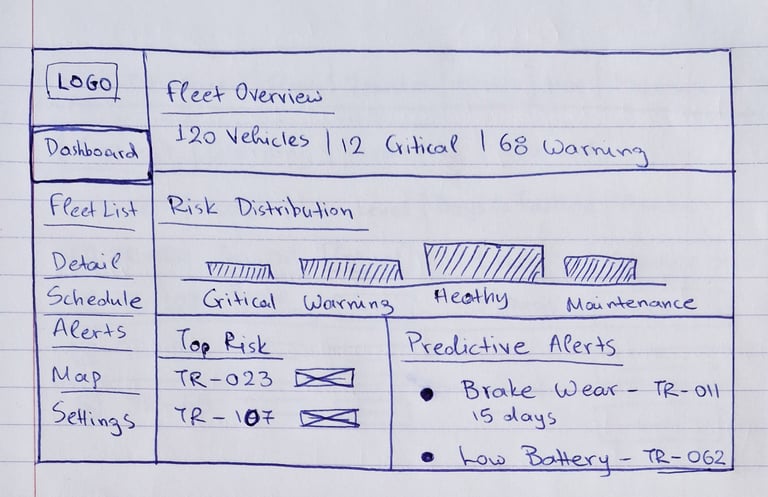 LOGO
Dashboard
Fleet List
Detail
Schedule
Alerts
Map
Settings
Fleet Overview
120 Vehicles | 12 Critical | 68 Warning
Risk Distribution
Critical Warning Heathy Maintenance
Top Risk
TR-023
TR-107
Predictive Alerts
• Brake Wear - TR-011
15 days
• Low Battery - TR-062